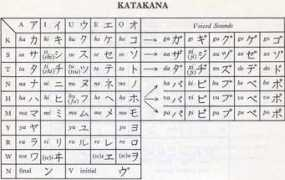 KATAKANA
A ア I イ U ウ E エ O オ Voiced Sounds
K ka カ ki キ ku ク ke ケ ko コ → ga ガ gi ギ gu グ ge ゲ go ゴ
S sa サ (shi) シ su ス se セ so ソ → za ザ (ji) ジ zu ズ ze ゼ zo ゾ
T ta タ (chi) チ (tsu) ツ te テ to ト → da ダ (ji) ヂ de デ do ド
N na ナ ni ニ nu ヌ ne ネ no ノ ba バ bi ビ bu ブ be ベ bo ボ
H ha ハ hi ヒ (fu) フ he ヘ ho ホ pa パ pi ピ pu プ pe ペ po ポ
M ma マ mi ミ mu ム me メ mo モ
Y ya ヤ yu ユ yo ヨ
R ra ラ ri リ ru ル re レ ro ロ
W wa ワ (w)i ヰ (w)e ヱ (w)o ヲ
N final ン V initial ヴ